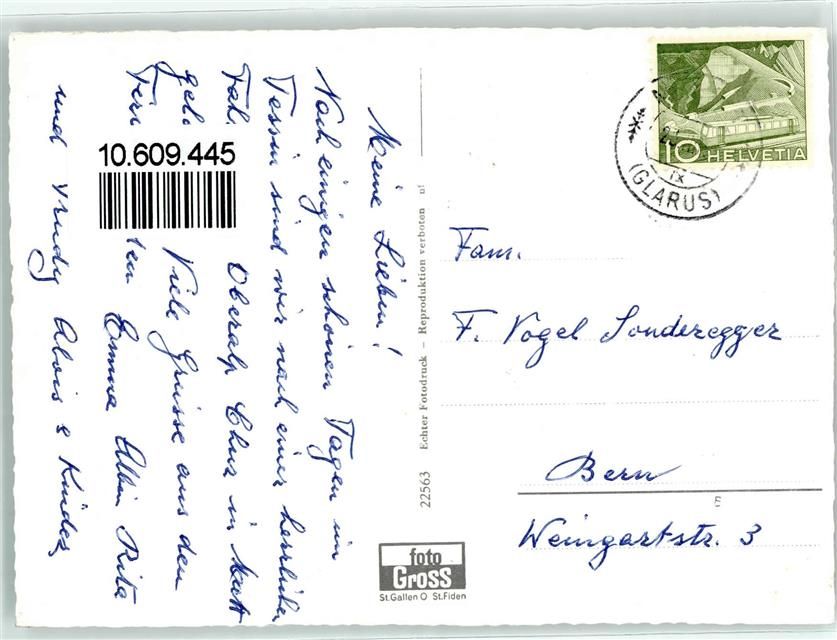 Meine Lieben!
Nach einigen schönen Tagen im
Tessin sind wir nach einer herrlichen
Fah. Oberalp Chur in Matt
gel. Viele Grüsse aus den
Feri ten Emma Albin Rita
und Trudy Alois & Kinder
10.609.445
22563 Echter Fotodruck – Reproduktion verboten u!
foto
Gross
St.Gallen O St.Fiden
10 HELVETIA
(GLARUS)
Fam.
F. Vogel Sonderegger
Bern
E
Weingartstr. 3